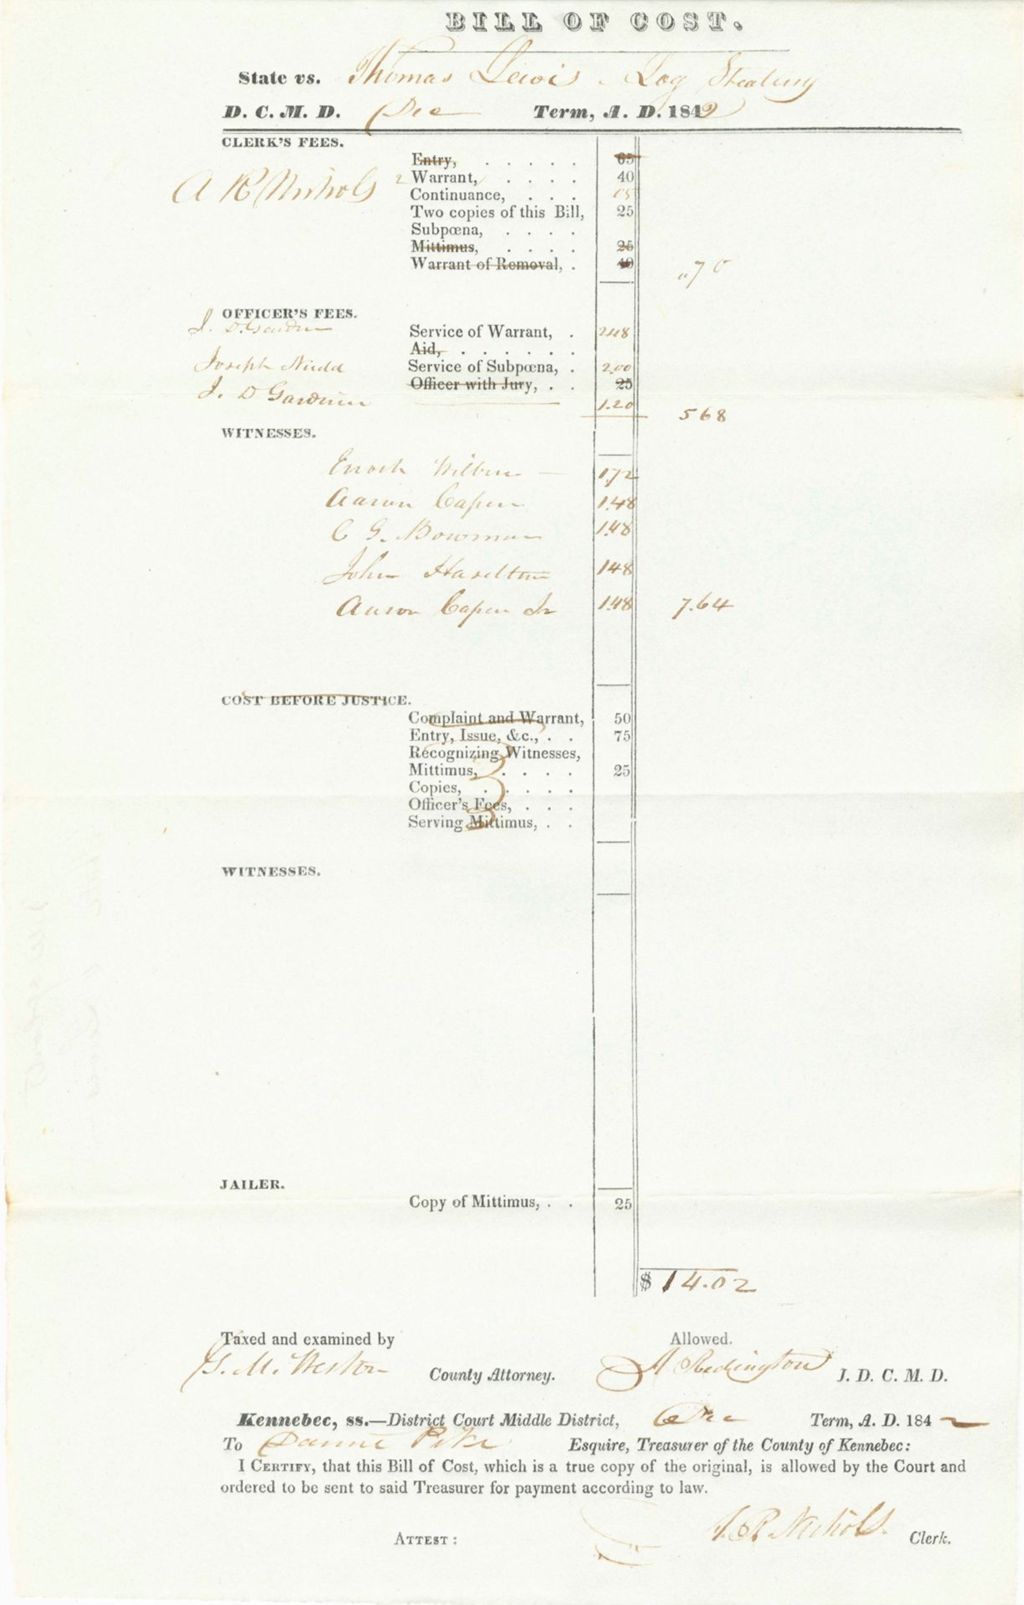 BILL OF COST.
State vs. Thomas Lewis. Log Stealing
D. C. M. D. Dec Term, A. D. 1842
CLERK'S FEES.
Entry, . . . . . 65
A R Nichols 2 Warrant, . . . . 40
Continuance, . . . 05
Two copies of this Bill, 25
Subpœna, . . . .
Mittimus, . . . . 25
Warrant of Removal, . 40 "70
OFFICER'S FEES.
J. D. Gardiner Service of Warrant, . 2.48
Aid, . . . . . .
Joseph Nudd Service of Subpœna, . 2.00
J. D Gardiner Officer with Jury, . . 25
1.20 568
WITNESSES.
Enoch Wilbur 1.72
Aaron Capen 1.48
C G. Bowman 1.48
John Haselton 148
Aaron Capen Jr 1.48 7.64
COST BEFORE JUSTICE.
Complaint and Warrant, 50
Entry, Issue, &c., . . 75
Recognizing Witnesses,
Mittimus, . . . . 25
Copies, . . . . .
Officer's Fees, . . .
Serving Mittimus, . .
WITNESSES.
JAILER.
Copy of Mittimus, . . 25
$ 14.02
Taxed and examined by Allowed.
G. M. Weston County Attorney. A Redington J. D. C. M. D.
Kennebec, ss.—District Court Middle District, Dec Term, A. D. 1842
To Daniel Pike Esquire, Treasurer of the County of Kennebec:
I CERTIFY, that this Bill of Cost, which is a true copy of the original, is allowed by the Court and
ordered to be sent to said Treasurer for payment according to law.
ATTEST: A. R. Nichols. Clerk.